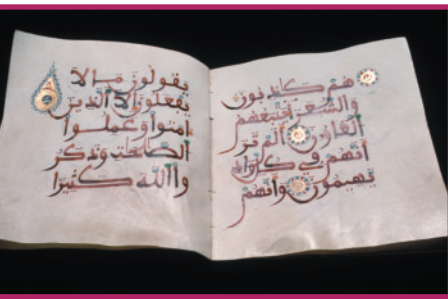 هم كاذبون
والشعراء يتبعهم
الغاوون ألم تر
أنهم في كل واد
يهيمون وأنهم
يقولون ما لا
يفعلون إلا الذين
امنوا وعملوا
الصالحات وذكر
وا الله كثيرا